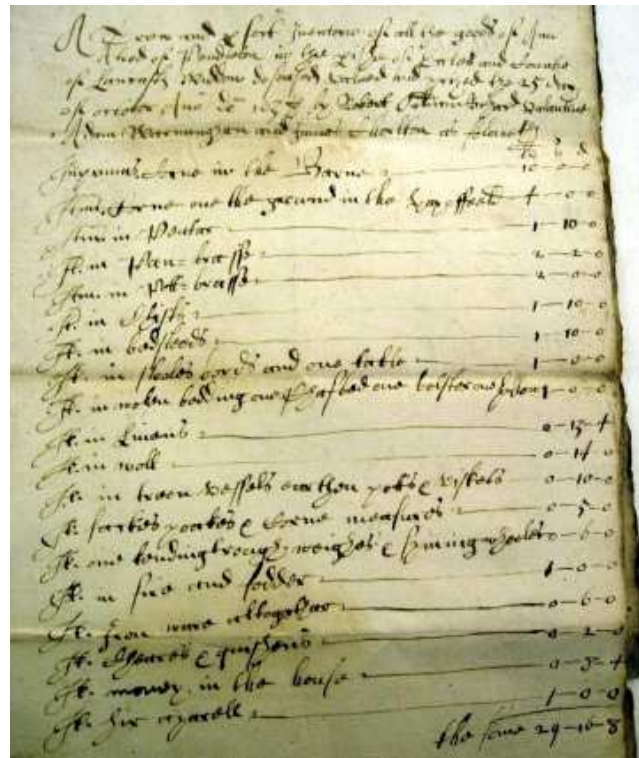 A Trew and p'fect Inventorie of all the goods of Ann
of Pendleton in the p'ishe of Eccles and Countie
of Lancastr Widdow deseased valued and prized the 25 day
of october Ano by Robert
Adam and James Chorlton as
li s d
Inprimis Corne in the Barne 10-0-0
Itm Corne one the ground in the 4-0-0
Itm in Peuter 1-10-0
It. in Pan-brasse 2-2-0
Itm in Pott-brasse 2-0-0
It. in Chists 1-10-0
It. in bedsteeds 1-10-0
It. in stooles bords and one table 1-0-0
It. in bedding one one bolster one 1-0-0
It. in Linens 0-13-4
It. in woll 0-14-0
It. in treen vessels earthen potts & 0-10-0
It. sackes poakes & Corne measures 0-5-0
It. one weighes & spining wheeles 0-6-0
It. in fire and fodder 1-0-0
It. Iron ware altogether 0-6-0
It. Cheares & quishens 0-2-0
It. money in the house 0-3-4
It. hir aparell 1-0-0
the some 29-10-8